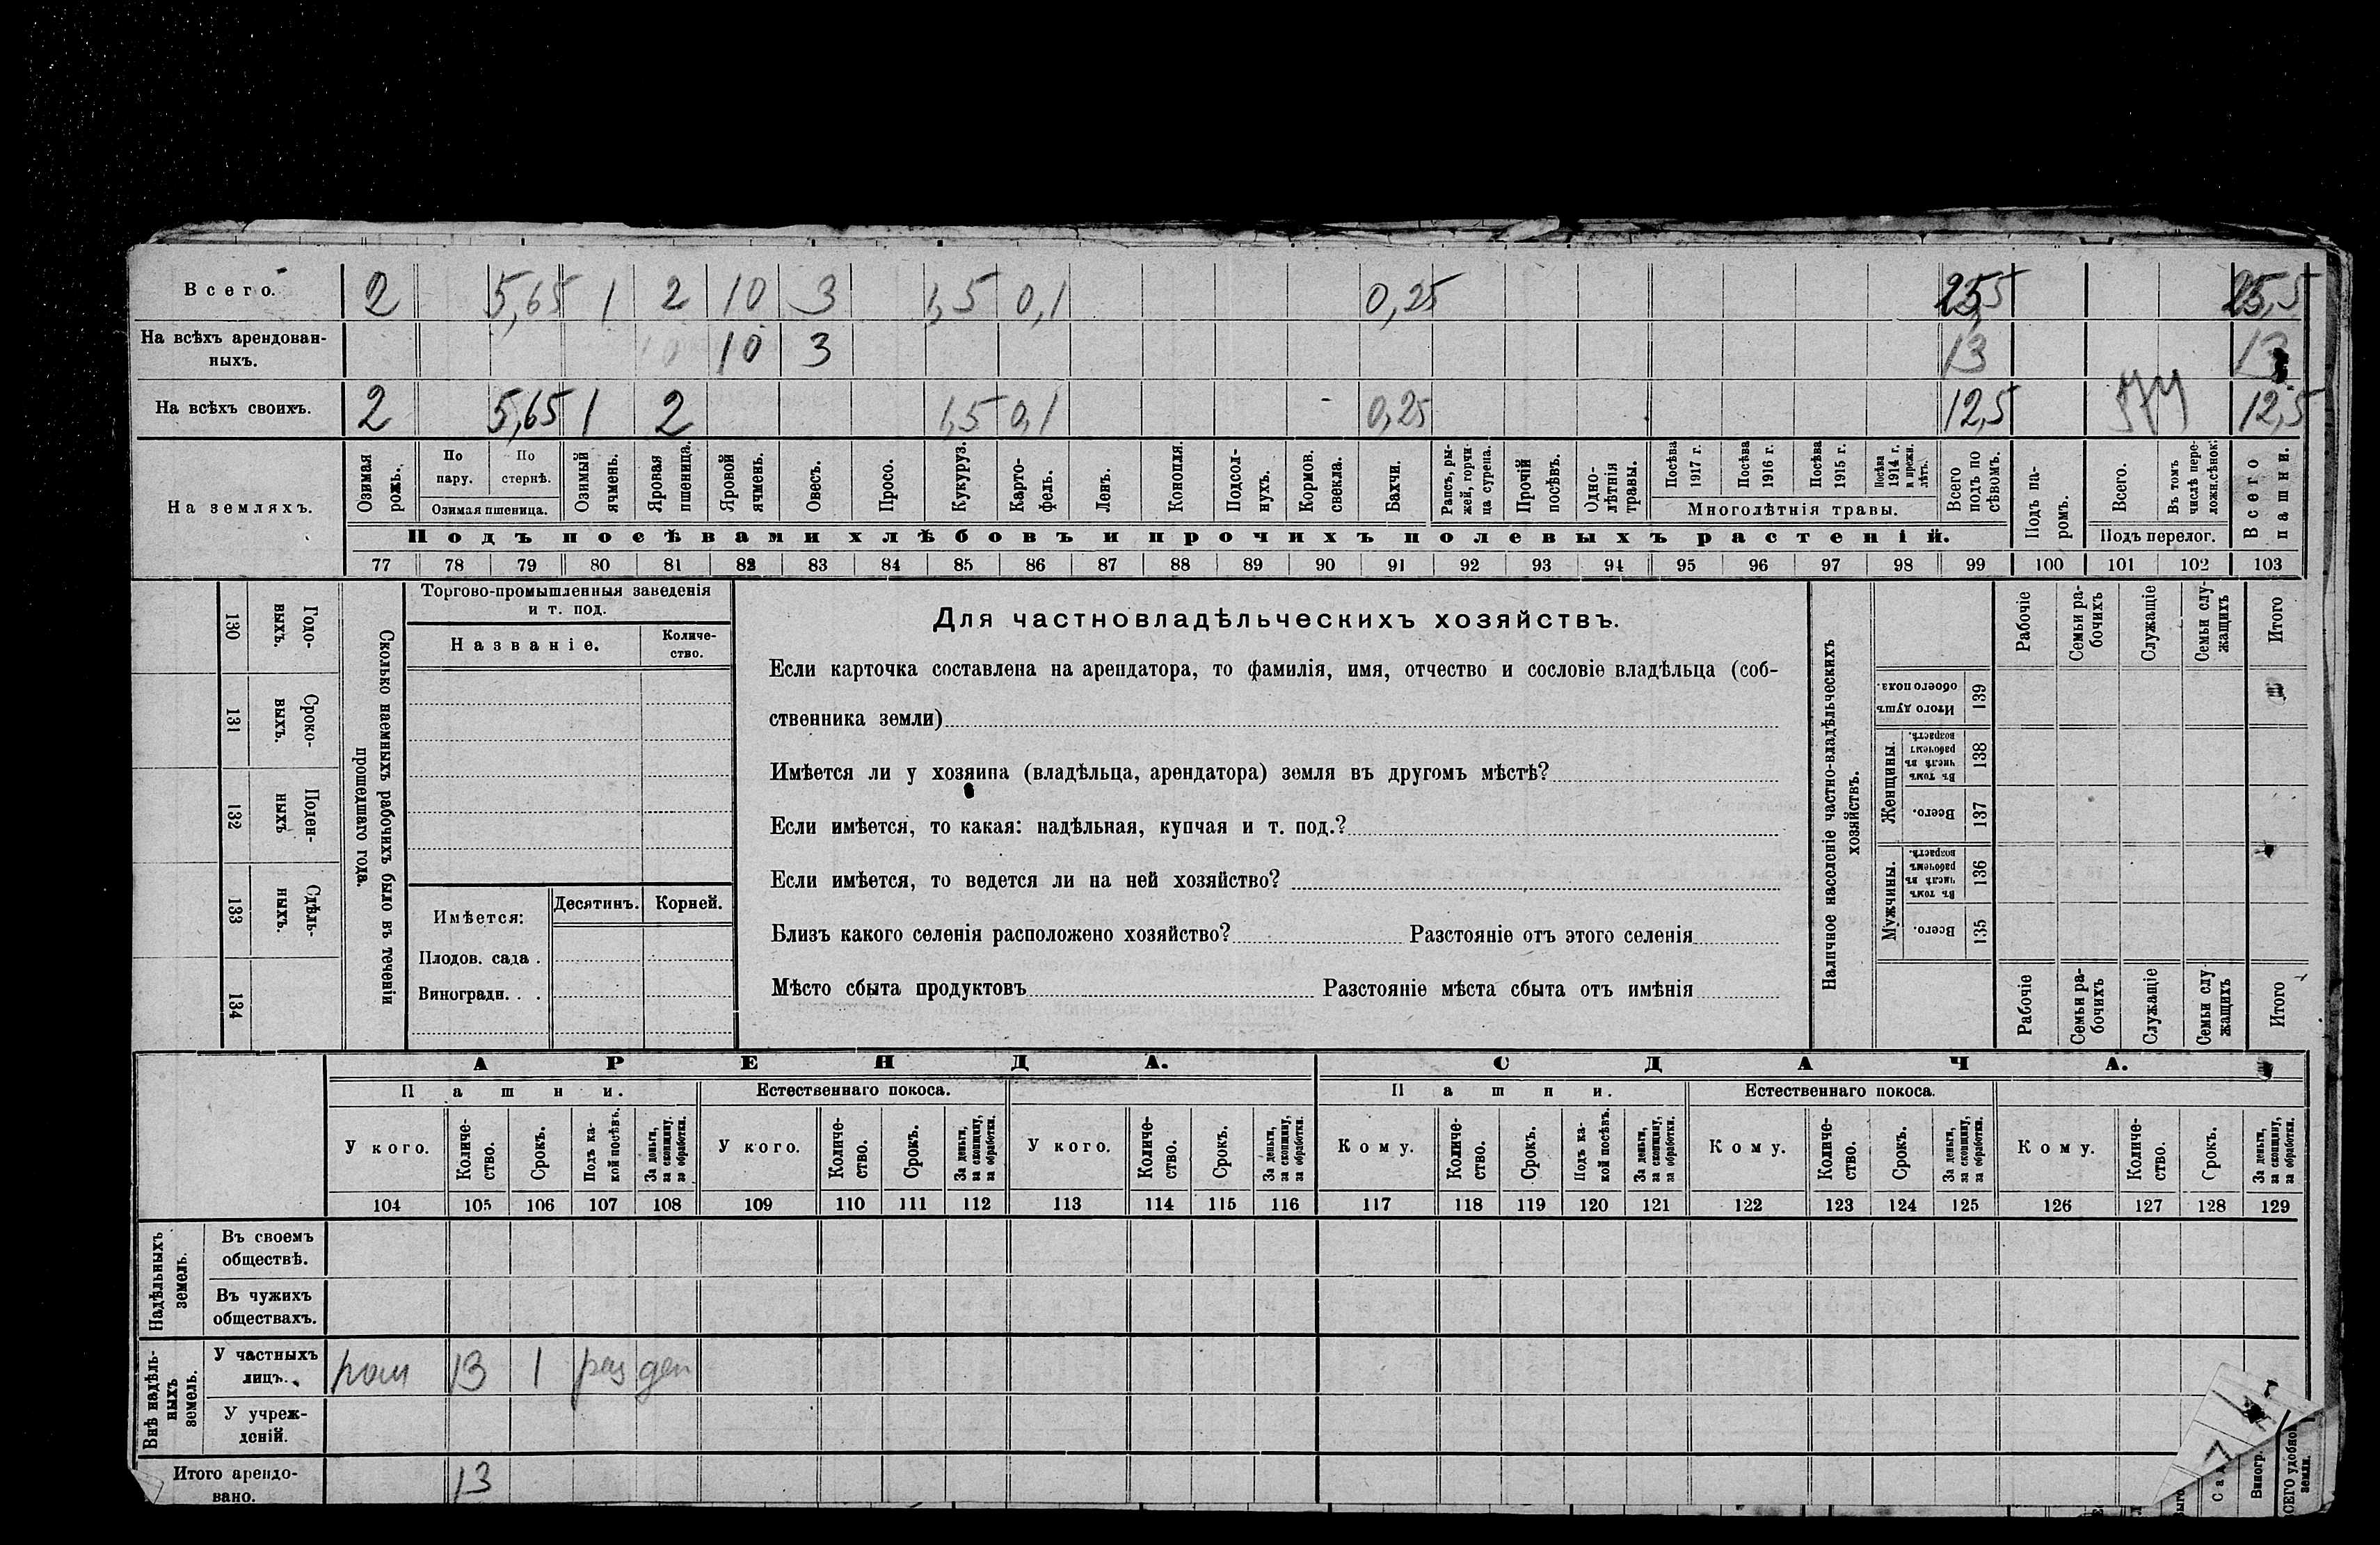 Всего. 2 5,65 1 2 10 3 1,5 0,1 0,25 25,5 25,5
На всѣхъ арендован-
ныхъ. 10 3 13 13
На всѣхъ своихъ. 2 5,65 1 2 1,5 0,1 0,25 12,5 12,5
На земляхъ.
Озимая рожь.
По пару.
По стернѣ.
Озимая пшеница.
Озимый ячмень.
Яровая пшеница.
Яровой ячмень.
Овесъ.
Просо.
Кукуруз.
Карто-
фель.
Ленъ.
Конопля.
Подсол-
нухъ.
Кормов. свекла.
Бахчи.
Рапсъ, ры-
жей, горчи-
ца сурепа.
Прочій посѣвъ.
Одно-
лѣтнія травы.
Посѣва 1917 г.
Посѣва 1916 г.
Посѣва 1915 г.
Посѣва 1914 г. и прежн. лѣтъ.
Многолѣтнія травы.
Всего подъ по
сѣвомъ.
Подъ па-
ромъ.
Всего.
Въ томъ числѣ пере-
ложн.сѣнок.
Подъ перелог.
Всего пашни.
Подъ посѣвами хлѣбовъ и прочихъ полевыхъ растеній.
77 78 79 80 81 82 83 84 85 86 87 88 89 90 91 92 93 94 95 96 97 98 99 100 101 102 103
130 Годо-
выхъ.
131 Сроко-
выхъ.
132 Поден-
ныхъ
133 Сдѣль-
ныхъ.
134
Сколько наемныхъ рабочихъ было въ теченіи
прошедшаго года.
Торгово-промышленныя заведенія
и т. под.
Названіе.
Количе-
ство.
Имѣется:
Десятинъ. Корней.
Плодов. сада .
Виноградн. . .
Для частновладѣльческихъ хозяйствъ.
Если карточка составлена на арендатора, то фамилія, имя, отчество и сословіе владѣльца (соб-
ственника земли)
Имѣется ли у хозяина (владѣльца, арендатора) земля въ другомъ мѣстѣ?
Если имѣется, то какая: надѣльная, купчая и т. под.?
Если имѣется, то ведется ли на ней хозяйство?
Близъ какого селенія расположено хозяйство? Разстояніе отъ этого селенія
Мѣсто сбыта продуктовъ Разстояніе мѣста сбыта отъ имѣнія
Наличное населеніе частно-владѣльческихъ
хозяйствъ.
Рабочіе
Семьи ра-
бочихъ
Служащіе
Семьи слу-
жащихъ
Итого
Итого душъ обоего пола. 139
Женщины.
Въ томъ числѣ въ рабочемъ возрастѣ. 138
Всего. 137
Мужчины.
Въ томъ числѣ въ рабочемъ возрастѣ. 136
Всего. 135
Рабочіе
Семьи ра-
бочихъ
Служащіе
Семьи слу
жащихъ
Итого
АРЕНДА. СДАЧА.
Пашни. Естественнаго покоса. Пашни. Естественнаго покоса.
У кого.
Количе-
ство.
Срокъ.
Подъ ка-
кой посѣвъ.
За деньги,
за скопщину,
за обработки.
У кого.
Количе-
ство.
Срокъ.
За деньги,
за скопщину,
за обработки.
У кого.
Количе-
ство.
Срокъ.
За деньги,
за скопщину,
за обработки.
Кому.
Количе-
ство.
Срокъ.
Подъ ка-
кой посѣвъ.
За деньги,
за скопщину,
за обработки.
Кому.
Количе-
ство.
Срокъ.
За деньги,
за скопщину,
за обработки.
Кому.
Количе-
ство.
Срокъ.
За деньги,
за скопщину,
за обработки.
104 105 106 107 108 109 110 111 112 113 114 115 116 117 118 119 120 121 122 123 124 125 126 127 128 129
Надѣльныхъ
земель.
Въ своемъ
обществѣ.
Въ чужихъ
обществахъ.
Внѣ надѣль-
ныхъ
земель.
У частныхъ
лицъ. 13 1 раз ден
У учреж-
деній.
Итого арендо-
вано. 13
Виногр.
СЕГО удобной
земли.